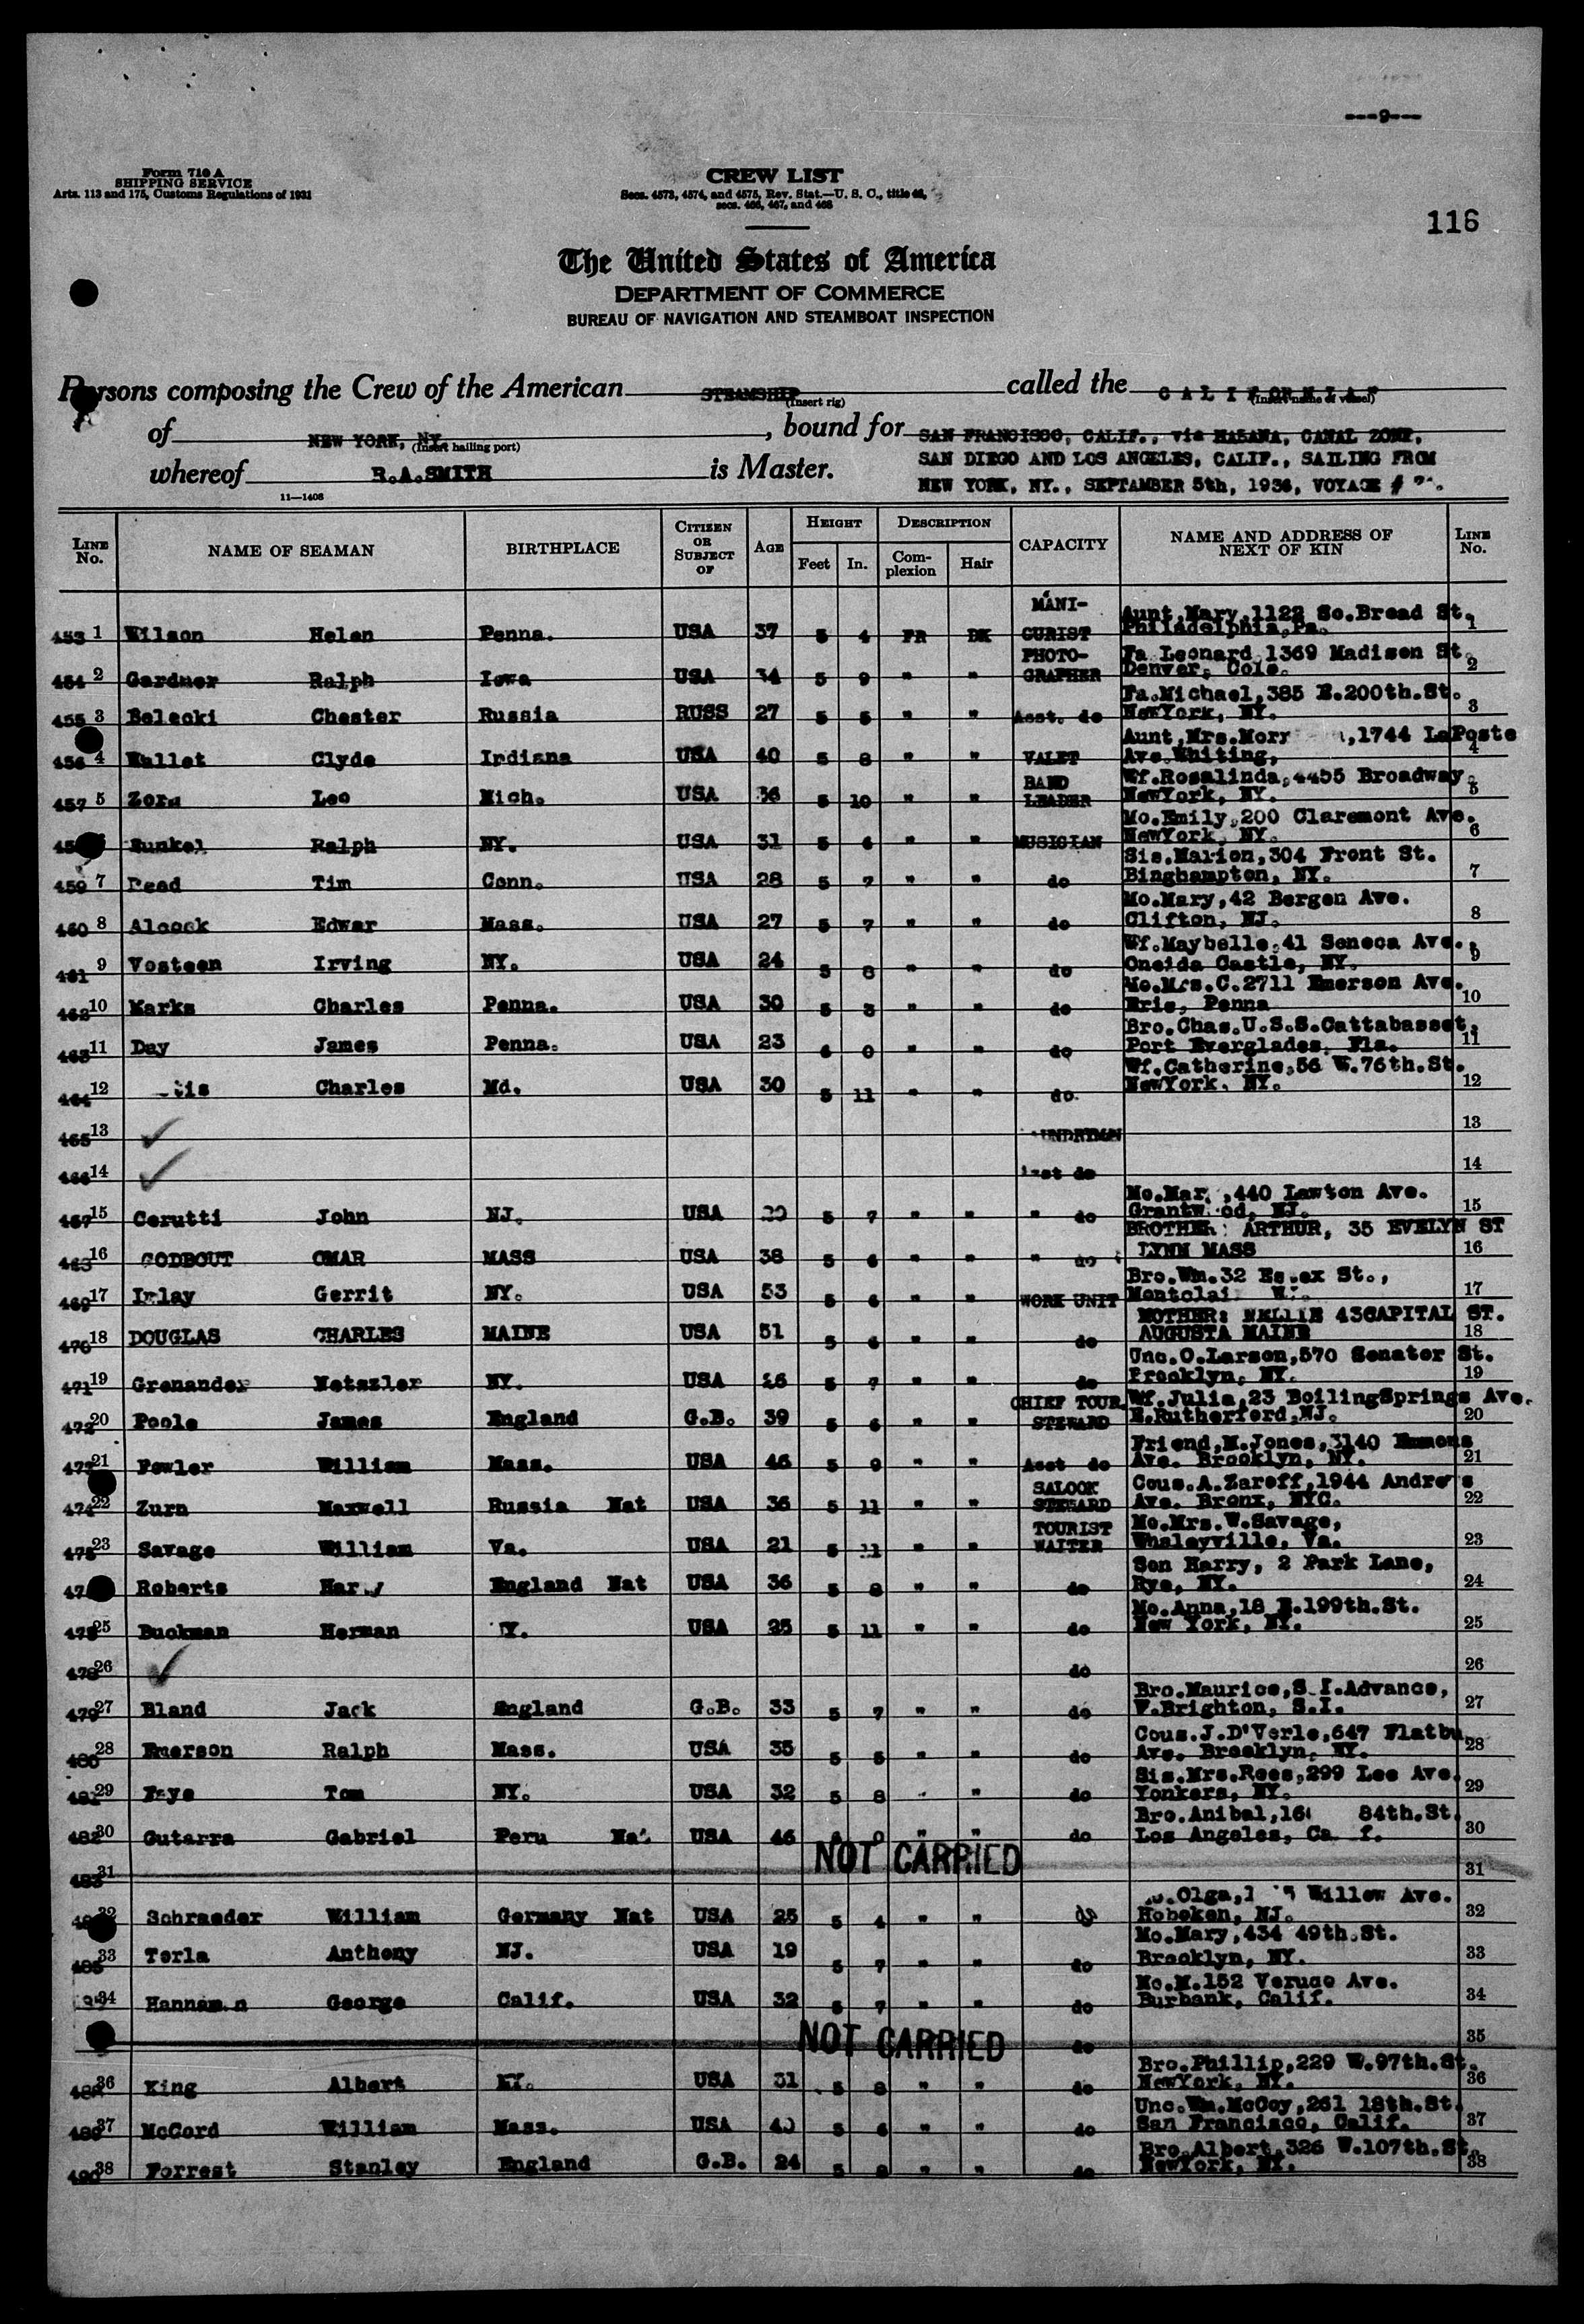 ---9---
Form 710 A
SHIPPING SERVICE
Arts. 113 and 175, Customs Regulations of 1931
CREW LIST
Secs. 4573, 4574, and 4575, Rev. Stat.—U. S. C., title 46,
secs. 466, 467, and 468
116
The United States of America
DEPARTMENT OF COMMERCE
BUREAU OF NAVIGATION AND STEAMBOAT INSPECTION
Persons composing the Crew of the American STEAMSHIP called the CALIFORNIAN
(Insert rig) (Insert name of vessel)
of NEW YORK, NY. , bound for SAN FRANCISCO, CALIF., via HABANA, CANAL ZONE,
(Insert hailing port)
SAN DIEGO AND LOS ANGELES, CALIF., SAILING FROM
whereof R.A.SMITH is Master.
NEW YORK, NY., SEPTAMBER 5th, 1936, VOYAGE #
11—1408
LINE No. NAME OF SEAMAN BIRTHPLACE CITIZEN OR SUBJECT OF AGE HEIGHT Feet In. DESCRIPTION Complexion Hair CAPACITY NAME AND ADDRESS OF NEXT OF KIN LINE No.
453 1 Wilson Helen Penna. USA 37 5 4 FR DK MANI-CURIST Aunt.Mary,1122 So.Broad St. Philadelphia,Pa. 1
454 2 Gardner Ralph Iowa USA 34 5 9 " " PHOTO-GRAPHER Fa Leonard 1369 Madison St. Denver, Colo. 2
455 3 Belecki Chester Russia RUSS 27 5 5 " " Asst. do Fa.Michael,385 E.200th.St. NewYork, NY. 3
456 4 Wallet Clyde Indiana USA 40 5 8 " " VALET Aunt,Mrs. ,1744 LaPoste Ave.Whiting, 4
457 5 Zorn Leo Mich. USA 36 5 10 " " BAND LEADER Wf.Rosalinda,4455 Broadway. NewYork, NY. 5
6 Runkel Ralph NY. USA 31 5 6 " " MUSICIAN Mo.Emily,200 Claremont Ave. NewYork, NY. 6
459 7 Read Tim Conn. USA 28 5 7 " " do Sis.Marion,304 Front St. Binghampton, NY. 7
460 8 Alcock Edwar Mass. USA 27 5 7 " " do Mo.Mary,42 Bergen Ave. Clifton, NJ. 8
461 9 Vosteen Irving NY. USA 24 5 8 " " do Wf.Maybelle,41 Seneca Ave. Oneida Castle, NY. 9
462 10 Marks Charles Penna. USA 30 5 3 " " do Mo.Mrs.C.2711 Emerson Ave. Erie, Penna 10
463 11 Day James Penna. USA 23 6 0 " " do Bro.Chas.U.S.S.Cattabasset. Port Everglades, Fla. 11
464 12 Charles Md. USA 30 5 11 " " do. Wf.Catherine,56 W.76th.St. NewYork, NY. 12
465 13 ✓ 13
466 14 ✓ do 14
467 15 Cerutti John NJ. USA 5 7 " " " do ,440 Lawton Ave. NJ. 15
16 GODBOUT OMAR MASS USA 38 5 6 " " " do BROTHER: ARTHUR, 35 EVELYN ST LYNN MASS 16
469 17 Imlay Gerrit NY. USA 53 5 6 WORK UNIT Bro.Wm.32 Essex St., 17
470 18 DOUGLAS CHARLES MAINE USA 51 5 6 do MOTHER: NELLIE 43CAPITAL ST. AUGUSTA MAINE 18
471 19 Grenander Metszler NY. USA 26 5 7 do Unc.O.Larson,570 Senator St. Brooklyn, NY. 19
472 20 Poole James England G.B. 39 5 6 " " CHIEF TOUR. STEWARD Wf.Julia,23 BoilingSprings Ave. E.Rutherford,NJ. 20
473 21 Fowler William Mass. USA 46 5 9 " " Asst do Friend,M.Jones,3140 Emmons Ave. Brooklyn, NY. 21
474 22 Zurn Maxwell Russia Nat USA 36 5 11 " " SALOON STEWARD Cous.A.Zaroff,1944 Andrews Ave. Bronx, NYC. 22
475 23 Savage William Va. USA 21 5 11 " " TOURIST WAITER Mo.Mrs.W.Savage, Whaleyville, Va. 23
Roberts Harry England Nat USA 36 5 8 " " do Son Harry, 2 Park Lane, Rye, NY. 24
25 Buckman Herman USA 25 5 11 " " do Mo.Anna,18 E.199th.St. New York, NY. 25
478 26 ✓ do 26
479 27 Bland Jack England G.B. 33 5 7 " " do Bro.Maurice,S.I.Advance, W.Brighton, S.I. 27
480 28 Emerson Ralph Mass. USA 35 5 5 " " do Cous.J.D'Verle,647 Ave. Brooklyn, NY. 28
481 29 Faye Tom NY. USA 32 5 8 " " do Sis.Mrs.Rees,299 Lee Ave. Yonkers, NY. 29
482 30 Gutarra Gabriel Peru Nat USA 46 " " do Bro.Anibal, 84th.St. Los Angeles, 30
483 31 NOT CARRIED 31
32 Schraeder William Germany Nat USA 25 5 4 " " do Olga, Willow Ave. Hoboken, NJ. 32
485 33 Terla Anthony NJ. USA 19 5 7 " " do Mo.Mary,434 49th.St. Brooklyn, NY. 33
34 George Calif. USA 32 5 7 " " do Mo.M.152 Verugo Ave. Burbank, Calif. 34
NOT CARRIED do 35
36 King Albert USA 31 5 8 " " do Bro.Phillip,229 W.97th.St. NewYork, NY. 36
489 37 McCord William Mass. USA 40 5 6 " " do Unc.Wm.McCoy,261 18th.St. San Francisco, Calif. 37
490 38 Forrest Stanley England G.B. 24 5 8 " " do Bro.Albert,326 W.107th.St. NewYork, NY. 38